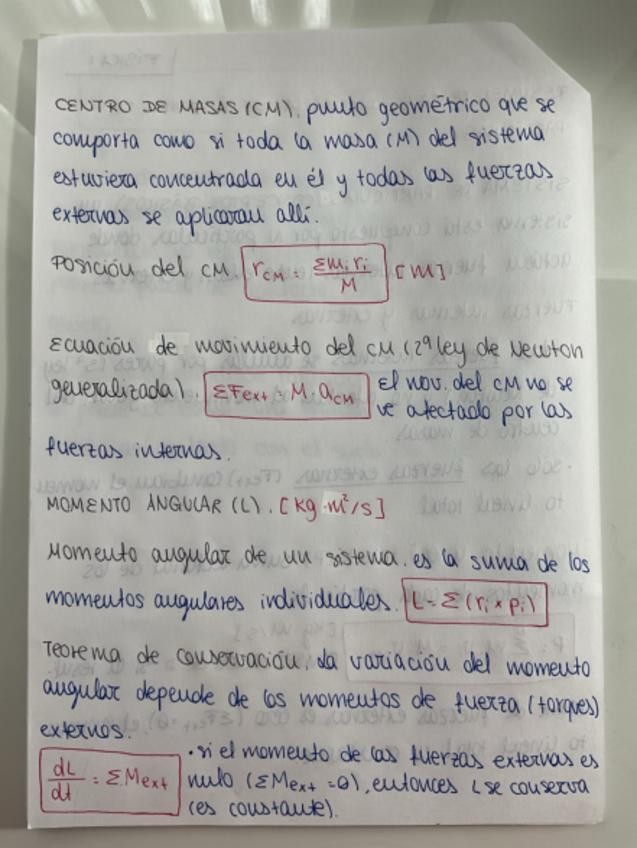 CENTRO DE MASAS (CM). punto geométrico que se
comporta como si toda la masa (M) del sistema
estuviera concentrada en él y todas las fuerzas
externas se aplicaran allí.
Posición del CM. r_CM = Σm_i r_i / M [M]
Ecuación de movimiento del CM (2ª ley de Newton
generalizada). ΣF_ext = M · a_CM El mov. del CM no se
ve afectado por las
fuerzas internas.
MOMENTO ANGULAR (L). [kg·m²/s]
Momento angular de un sistema. es la suma de los
momentos angulares individuales. L = Σ (r_i × p_i)
Teorema de conservación. La variación del momento
angular depende de los momentos de fuerza (torques)
externos.
dL/dt = ΣM_ext · si el momento de las fuerzas externas es
nulo (ΣM_ext = 0), entonces L se conserva
(es constante).